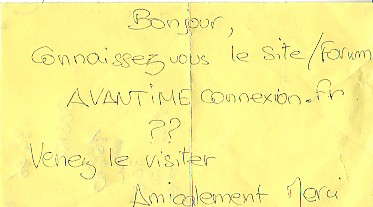 Bonjour,
Connaissez vous le site/forum
AVANTIME connexion.fr
??
Venez le visiter
Amicalement Merci